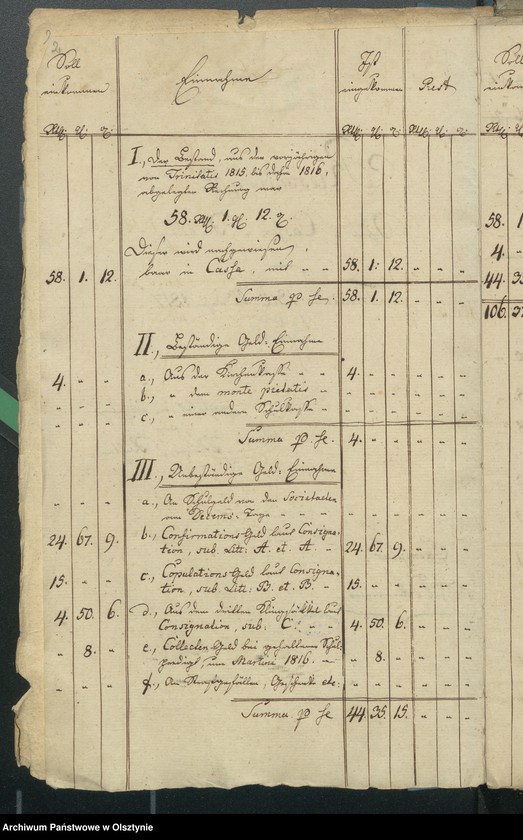 Soll
einkommen
Einnahme
Ist
eingekommen
Rest
Rtl. gl. d.
Rtl. gl. d.
Rtl. gl. d.
I., Der Bestand, aus der vorjährigen
von Trinitatis 1815. bis dahin 1816,
abgelegten Rechnung war
58. Rtl. 1. gl. 12. d.
Dieser wird nachgewiesen,
baar in Cassa, mit " "
58. 1. 12.
58. 1. 12.
Summa p. se. 58. 1. 12.
II., Beständige Geld-Einnahme
4. " " a., Aus der Kirchenkasse " " 4. " "
" " " b., " dem monte pietatis " " " "
" " " c., " einer andern Schulkasse " " " "
Summa p. se. 4. " "
III., Unbeständige Geld-Einnahme
a., An Schulgeld von den Societaeten
am Decems-Tage " " "
24. 67. 9. b., Confirmations-Geld laut Consigna-
tion, sub Litt: A. et. A " 24. 67. 9.
15. " " c., Copulations-Geld laut Consigna-
tion, sub Litt: B. et. B. " 15. " "
4. 50. 6. d., Aus dem dritten Klingsäckel laut
Consignation, sub. C. " " 4. 50. 6.
" 8. " e., Collecten-Geld bei gehaltener Schul-
predigt, um Martini 1816. " " 8. "
" " " f., An Strafgefällen, Geschenk etc: " " "
Summa p se 44. 35. 15.
Soll
58. 1
4.
44. 35
106. 37
Archiwum Państwowe w Olsztynie